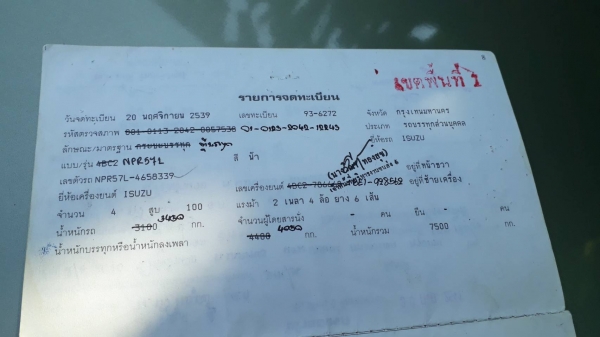 8
เขตพื้นที่ 1
รายการจดทะเบียน
วันจดทะเบียน 20 พฤศจิกายน 2539 เลขทะเบียน 93-6272 จังหวัด กรุงเทพมหานคร
รหัสตรวจสภาพ 001-0113-2042-0057538 01-0123-2042-12243 ประเภท รถบรรทุกส่วนบุคคล
ลักษณะ/มาตรฐาน กระบะบรรทุก ยี่ห้อรถ ISUZU
แบบ/รุ่น 4BC2 NPR57L สี ฟ้า
เลขตัวรถ NPR57L-4658339 อยู่ที่ หน้าขวา
ยี่ห้อเครื่องยนต์ ISUZU เลขเครื่องยนต์ อยู่ที่ ซ้ายเครื่อง
จำนวน 4 สูบ 100 แรงม้า 2 เพลา 4 ล้อ ยาง 6 เส้น
น้ำหนักรถ 3100 3430 กก. จำนวนผู้โดยสารนั่ง - คน ยืน - คน
น้ำหนักบรรทุกหรือน้ำหนักลงเพลา 4400 4030 กก. น้ำหนักรวม 7500 กก.